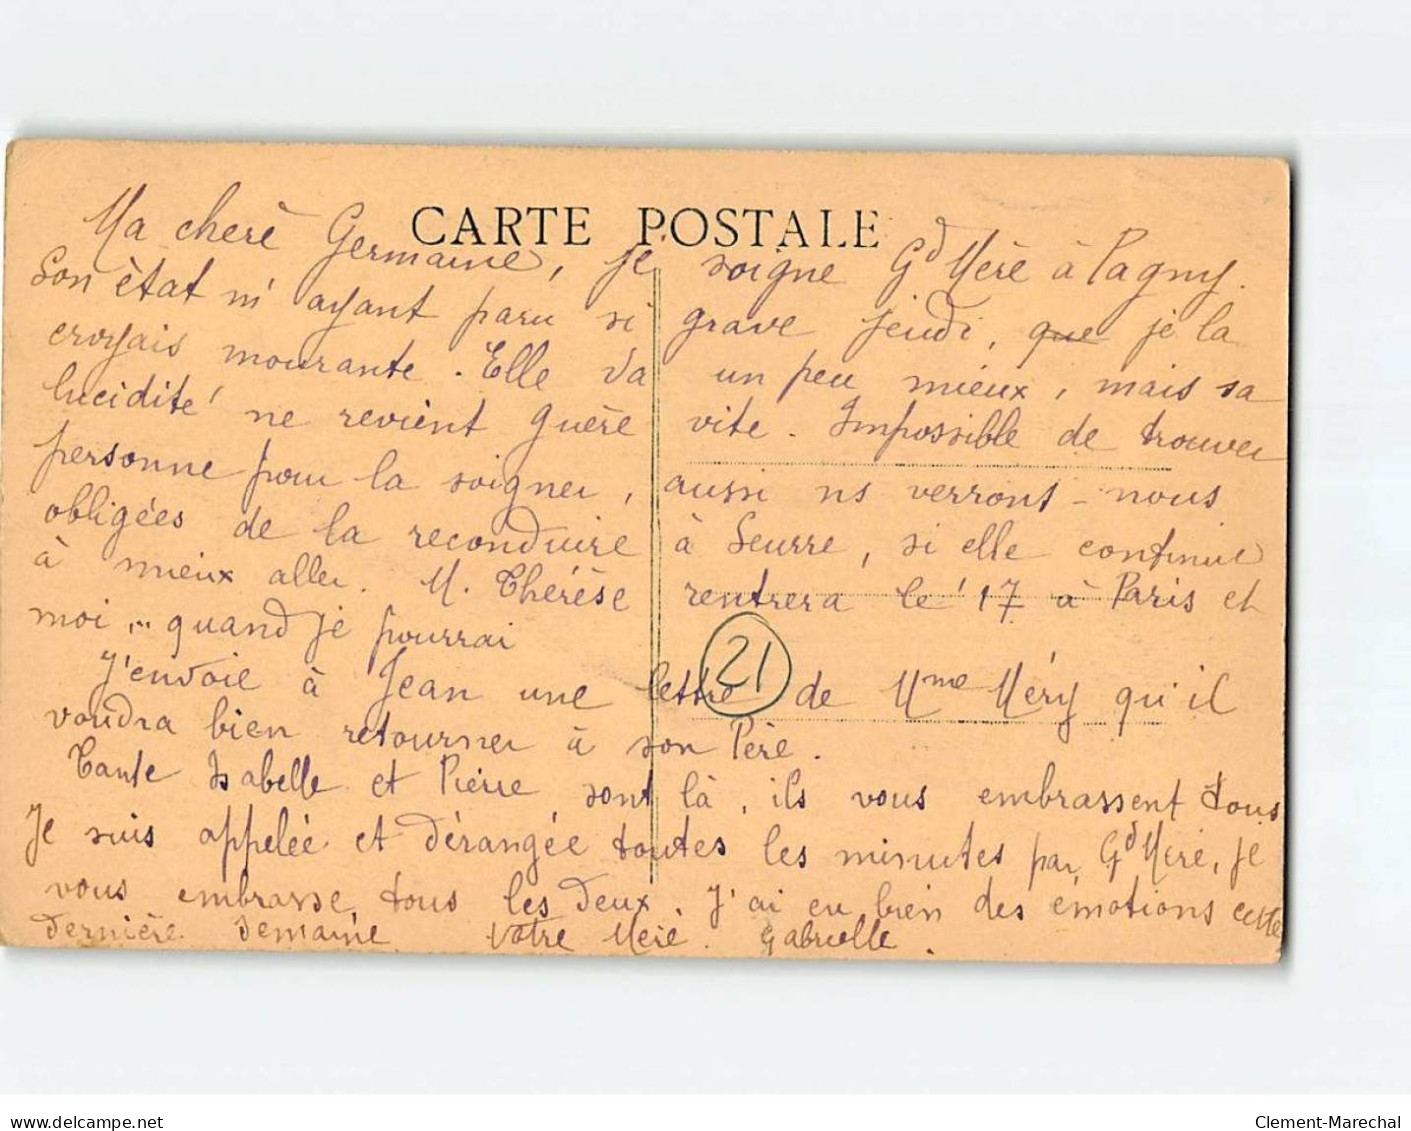 CARTE POSTALE
Ma cherè Germaine, je soigne Gd Mère à Pagny.
Son état m'ayant paru si grave jeudi, que je la
croyais mourante. Elle va un peu mieux, mais sa
lucidité ne revient guère vite. Impossible de trouver
personne pour la soigner, aussi ns verrons-nous
obligées de la reconduire à Seurre, si elle continue
à mieux aller. M. Thérèse rentrera le 17 à Paris et
moi... quand je pourrai
21
J'envoie à Jean une lettre de Mme Méry qu'il
voudra bien retourner à son Père.
Tante Isabelle et Pierre sont là, ils vous embrassent tous
Je suis appelée et dérangée toutes les minutes par Gd Mère, je
vous embrasse tous les deux. J'ai eu bien des émotions cette
dernière semaine Votre Mère. Gabrielle.
delcampe.net
Clement-Marechal